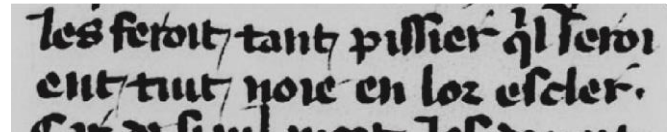 les feroit tant pissier q̃l seroi
ent tuit noie en lor escler.